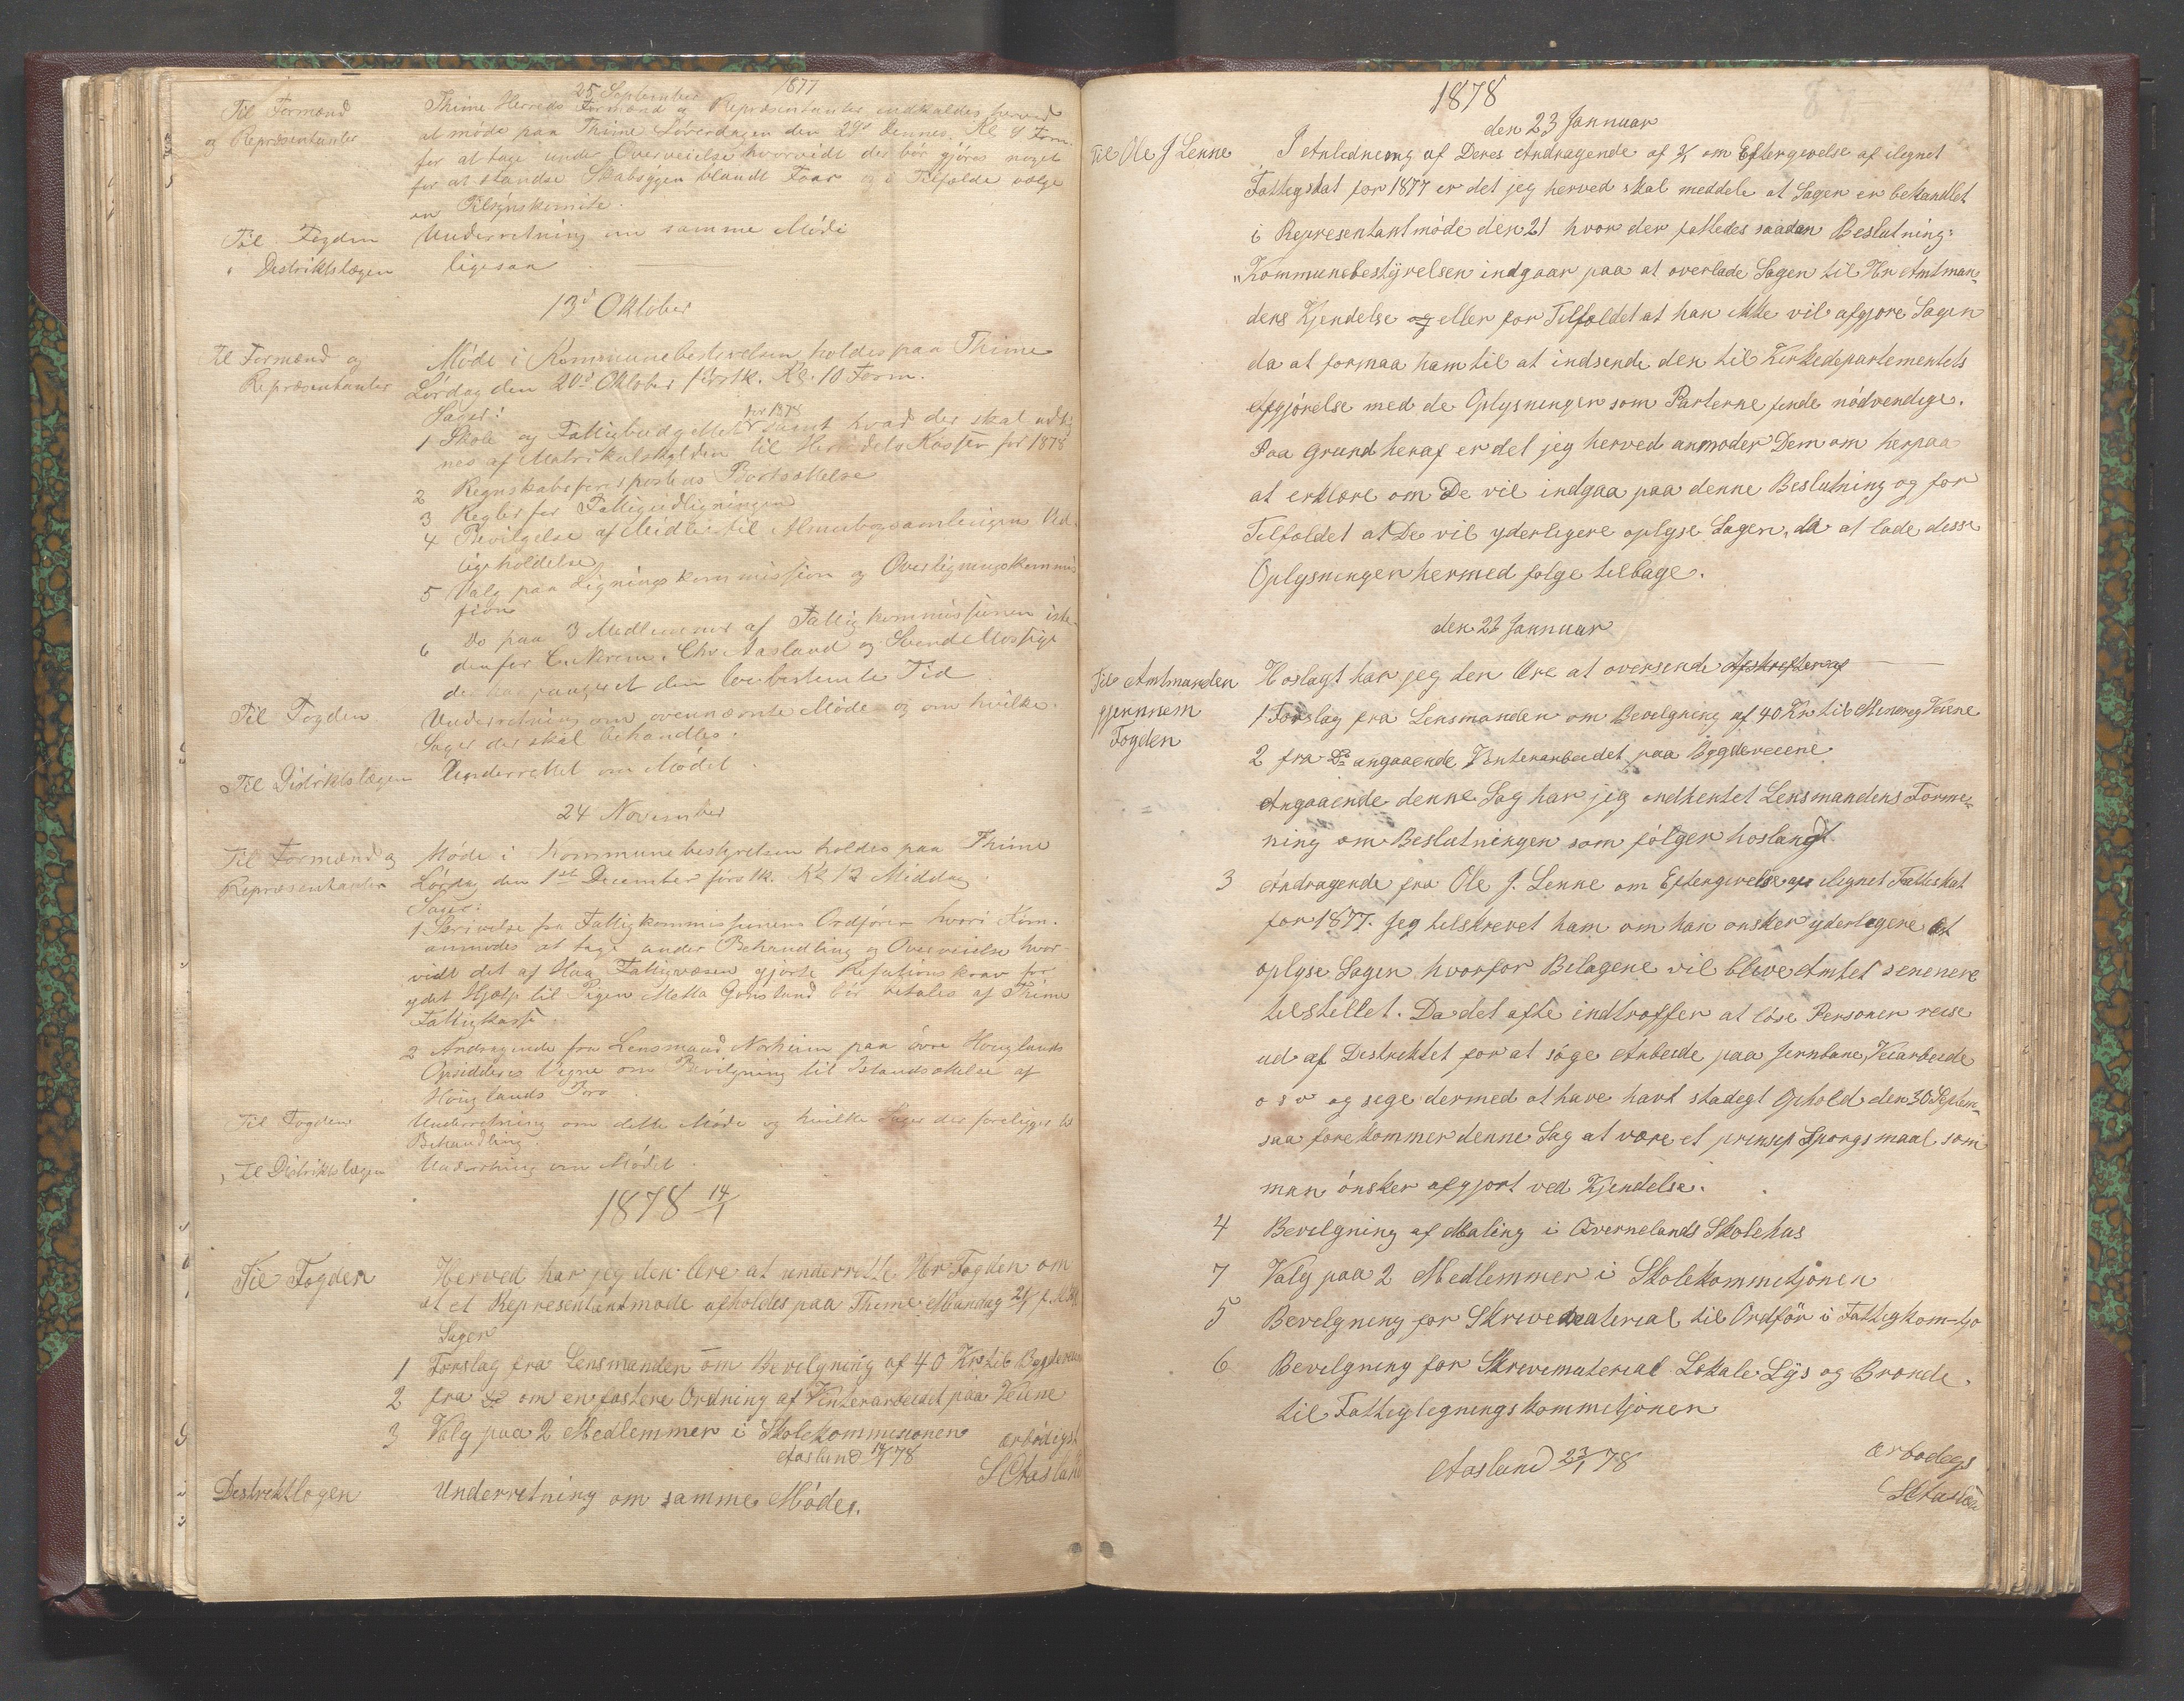 1877
25 September
Til Formænd
og Repræsentanter
Thime Herreds Formænd og Repræsentanter indkaldes herved
at møde paa Thime Løverdagen den 29de dennes Kl 9 Form.
for at tage under Overveielse hvorvidt der bør gjøres noget
for at standse Skabsygen blandt Faar og i Tilfælde vælge
en Tilsynskomite.
Til Fogden Underretning om samme Møde
" Distriktslægen ligesaa
13de Oktober
Til Formænd og
Repræsentanter
Møde i Kommunebestyrelsen holdes paa Thime
Lørdag den 20de Oktober førstk. Kl. 10 Form.
Sager:
1 Skole og Fattigbudgettet for 1878 samt hvad der skal udlig
nes af Matrikulskylden til Herredets Kasser for 1878
2 Regnskabsførerpostens Bortsættelse
3 Regler for Fattigudligningen
4 Bevilgelse af Midler til Almuebogsamlingens Ved-
ligeholdelse
5 Valg paa Ligningskommission og Overligningskommis
sion
6 Do paa 3 Medlemmer af Fattigkommissionen iste-
denfor Chr Aasland og Svend Mossige
der har fungeret den lovbestemte Tid
Til Fogden Underretning om ovennævnte Møde og om hvilke
Sager der skal behandles.
Til Distriktslægen Underrettet om Mødet.
24 November
Til Formænd og
Repræsentanter
Møde i Kommunebestyrelsen holdes paa Thime
Lørdag den 1ste December førstk. Kl 12 Middag
Sager:
1 Skrivelse fra Fattigkommissionens Ordfører hvori Kom.
anmodes at tage under Behandling og Overveielse hvor-
vidt det af Haa Fattigvæsen gjorte Refusionskrav for
ydet Hjælp til Pigen Metta bør betales af Thime
Fattigkasse.
2 Andragende fra Lensmand Norheim paa øvre Høiglands
Opsidderes Vegne om Bevilgning til Istandsættelse af
Høiglands Bro
Til Fogden Underretning om dette Møde og hvilke Sager der foreligger til
Behandling.
Til Distriktslægen Underretning om Mødet.
1878 14/1
Til Fogden Herved har jeg den Ære at underrette Hr Fogden om
at et Representantmøde afholdes paa Thime Mandag 21/1
Sager
1 Forslag fra Lensmanden om Bevilgning af 40 Kr til Bygdeveiene
2 fra Do om en fastere Ordning af Vinterarbeidet paa Veiene
3 Valg paa 2 Medlemmer i Skolekommisionen ærbødigst
Aasland 14/1 78 S Aasland
Destriktlægen Underretning om samme Møde.
1878
den 23 Jannuar
Til Ole J Lenne I Anledneing af Deres Andragende af 3/1 om Eftergivelse af ilegnet
Fattigskat for 1877 er det jeg herved skal meddele at Sagen er behandlet
i Representantmøde den 21 hvor der fattedes saadan Beslutning:
"Kommunebestyrelsen indgaar paa at overlade Sagen til Hr Amtman-
dens Kjendelse og eller for Tilfældet at han ikke vil afgjøre Sagen
da at formaa ham til at indsende den til Kirkedepartementets
Afgjørelse med de Oplysninger som Parterne finde nødvendige.
Paa Grund heraf er det jeg herved anmoder Dem om herpaa
at erklære om De vil indgaa paa denne Beslutning og for
Tilfældet at De vil yderligere oplyse Sagen, da at lade desse
Oplysninger hermed følge tilbage.
den 23 Jannuar
Til Amtmanden
gjennem
Fogden
Hoslagt har jeg den Ære at oversende Afskrifter af
1 Forslag fra Lensmanden om Bevelgning af 40 Kr til Mineveg Veiene
2 fra Do angaaende Vinterarbeidet paa Bygdeveiene
Angaaende denne Sag har jeg indhentet Lensmandens Forme-
ning om Beslutningen som følger hoslangt
3 Andragende fra Ole J. Lenne om Eftergivelse af ilegnet Fattiskat
for 1877. Jeg tilskrevet ham om han ønsker yderlegere at
oplyse Sagen hvorfor Bilagene vil blive Amtet senenere
tilstillet. Da det ofte indtræffer at løse Personer reise
ud af Destriktet for at søge Arbeide paa Jernbane, Veiarbeide
o s v og sige dermed at have havt stadegt Ophold den 30 Septem-
saa forekommer denne Sag at være et prinsip Spørgsmaal som
man ønsker afgjort ved Kjendelse.
4 Bevilgning af Maling i Qvernelands Skolehus
7 Valg paa 2 Medlemmer i Skolekommitjonen
5 Bevelgning for Skrivematerial til Ordfør i Fattigkom-tjo
6 Bevilgning for Skrivimaterial Lokale Lys og Brænde
til Fattiglegningskommitjonen
Aaslund 23/1 78 ærbødigs
S Aasland